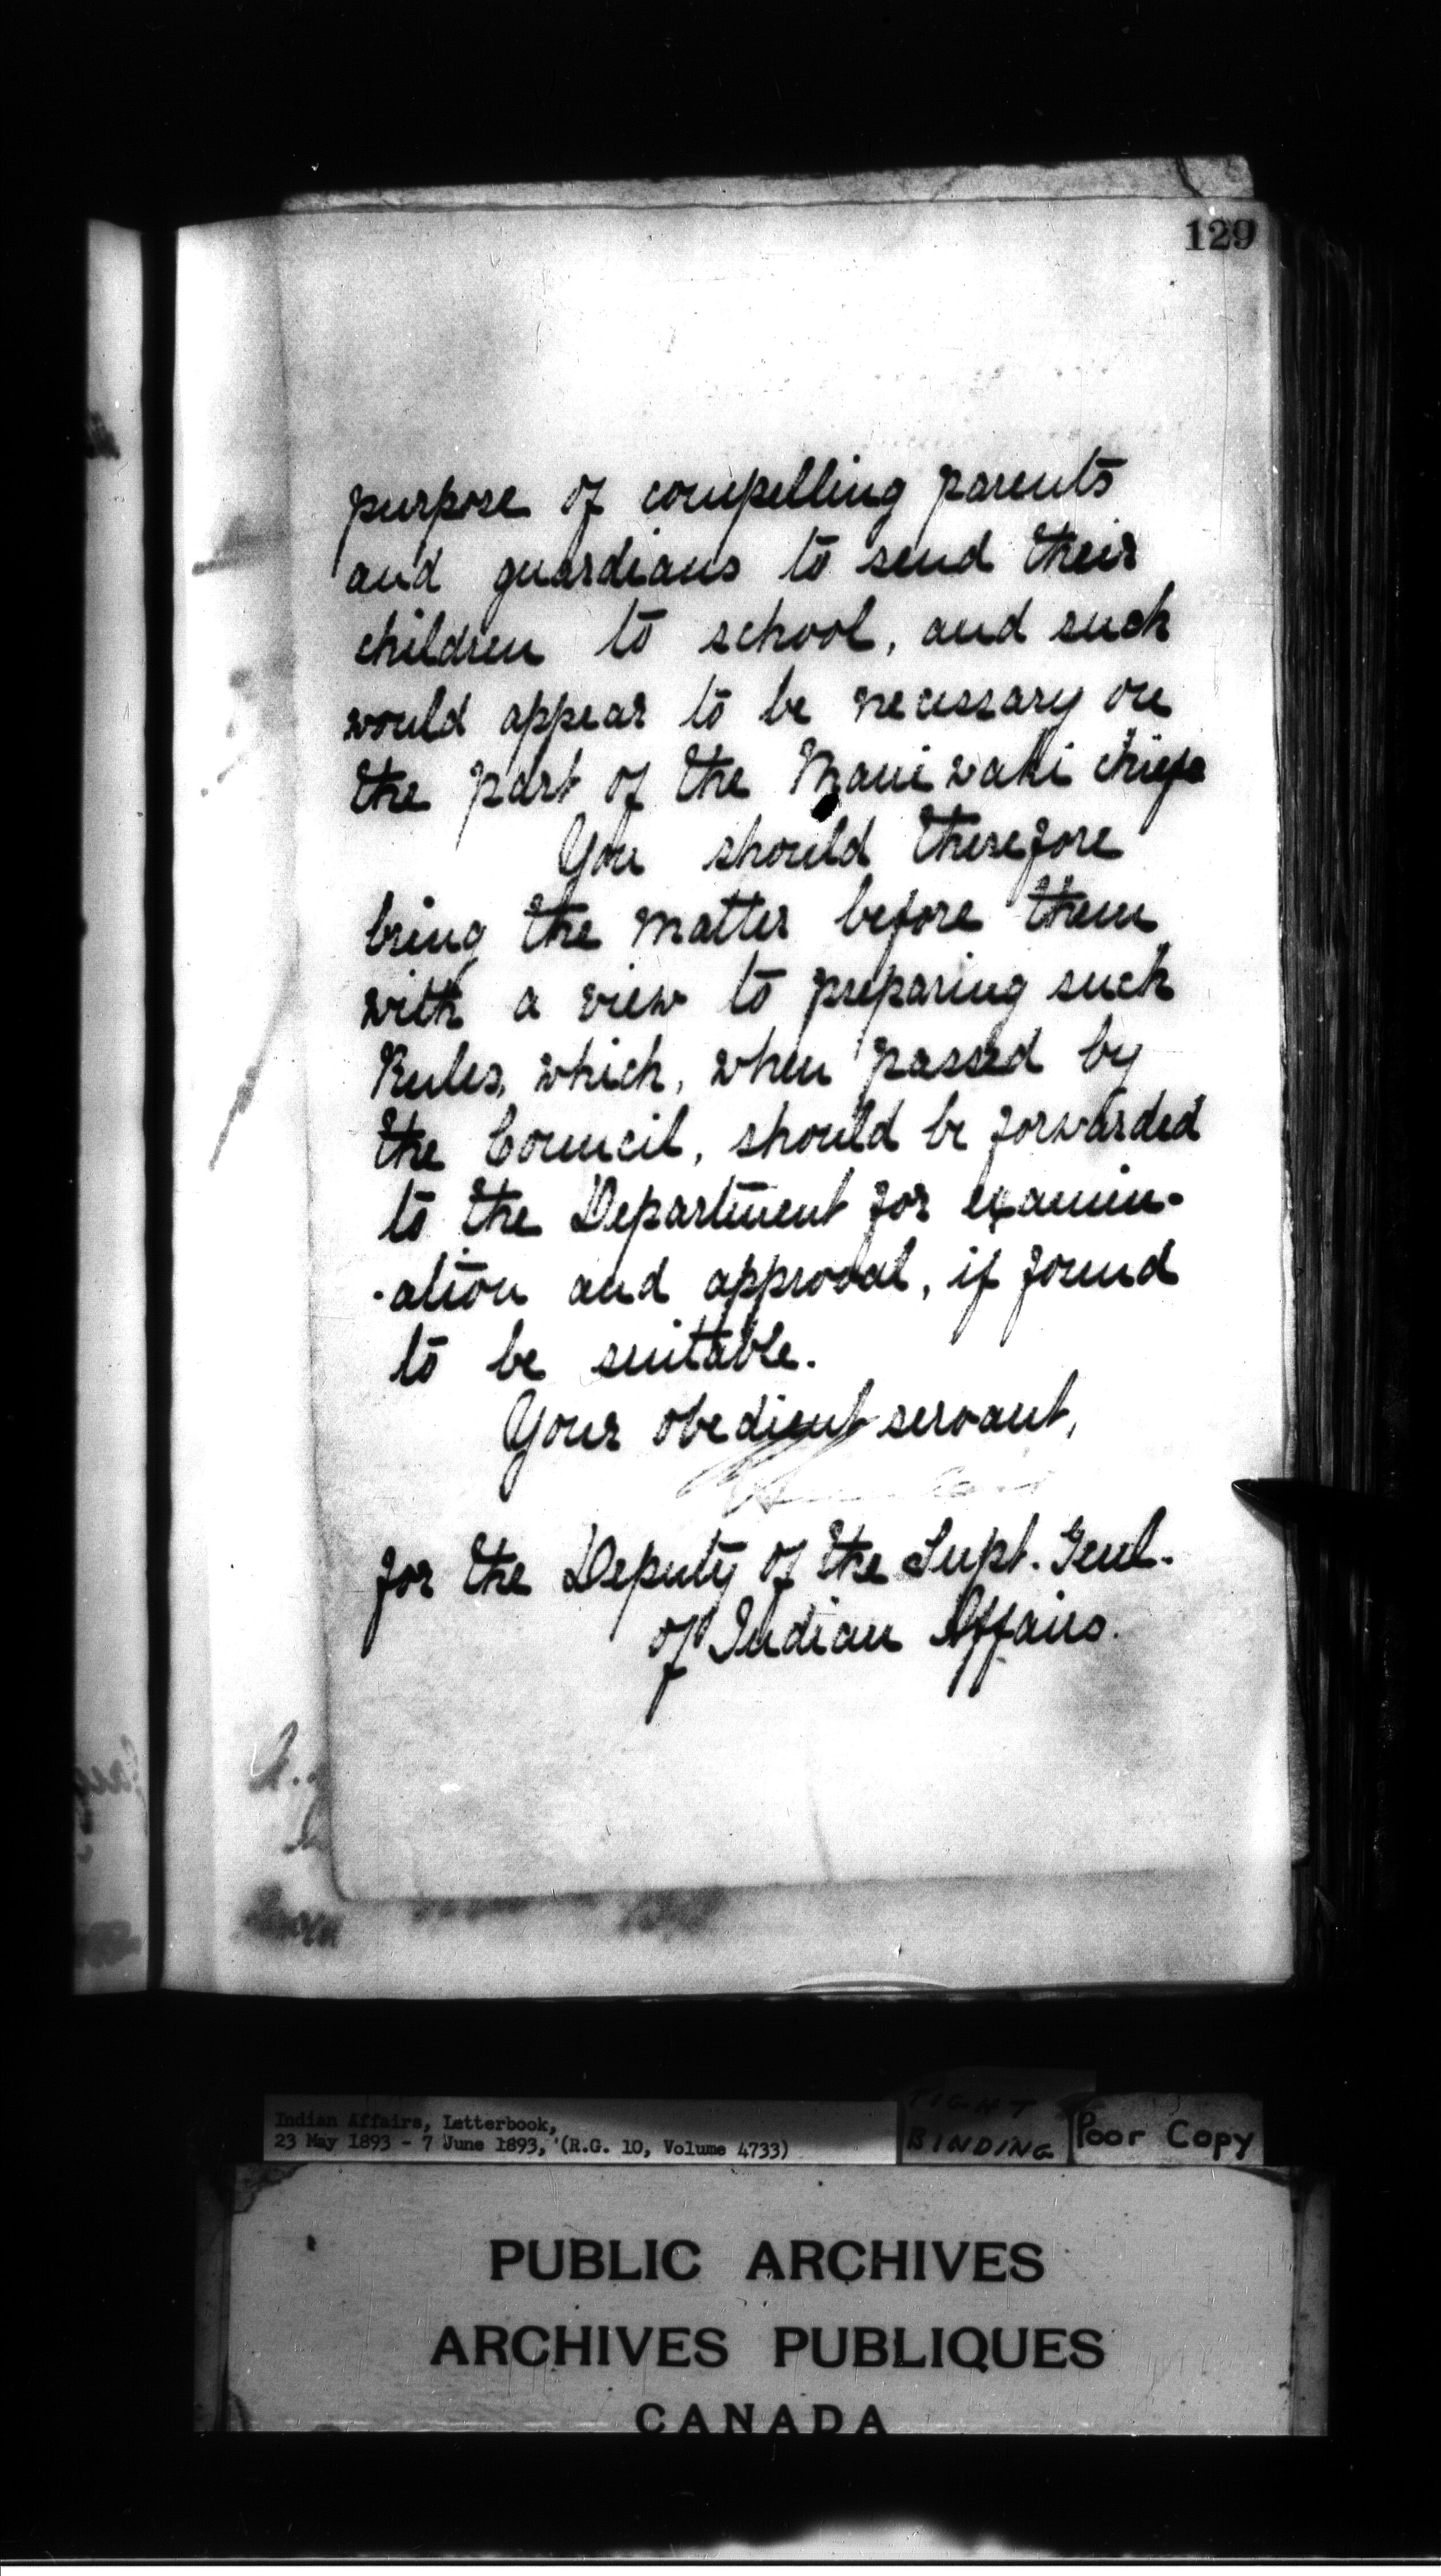 129
purpose of compelling parents
and guardians to send their
children to school, and such
would appear to be necessary on
the part of the Maniwaki Chiefs
You should therefore
bring the matter before them
with a view to preparing such
Rules, which, when passed by
the Council, should be forwarded
to the Department for examin-
-ation and approval, if found
to be suitable.
Your obedient servant,
for the Deputy of the Supt. Genl.
of Indian Affairs.
Indian Affairs, Letterbook,
23 May 1893 - 7 June 1893, (R.G. 10, Volume 4733)
TIGHT
BINDING
Poor Copy
PUBLIC ARCHIVES
ARCHIVES PUBLIQUES
CANADA